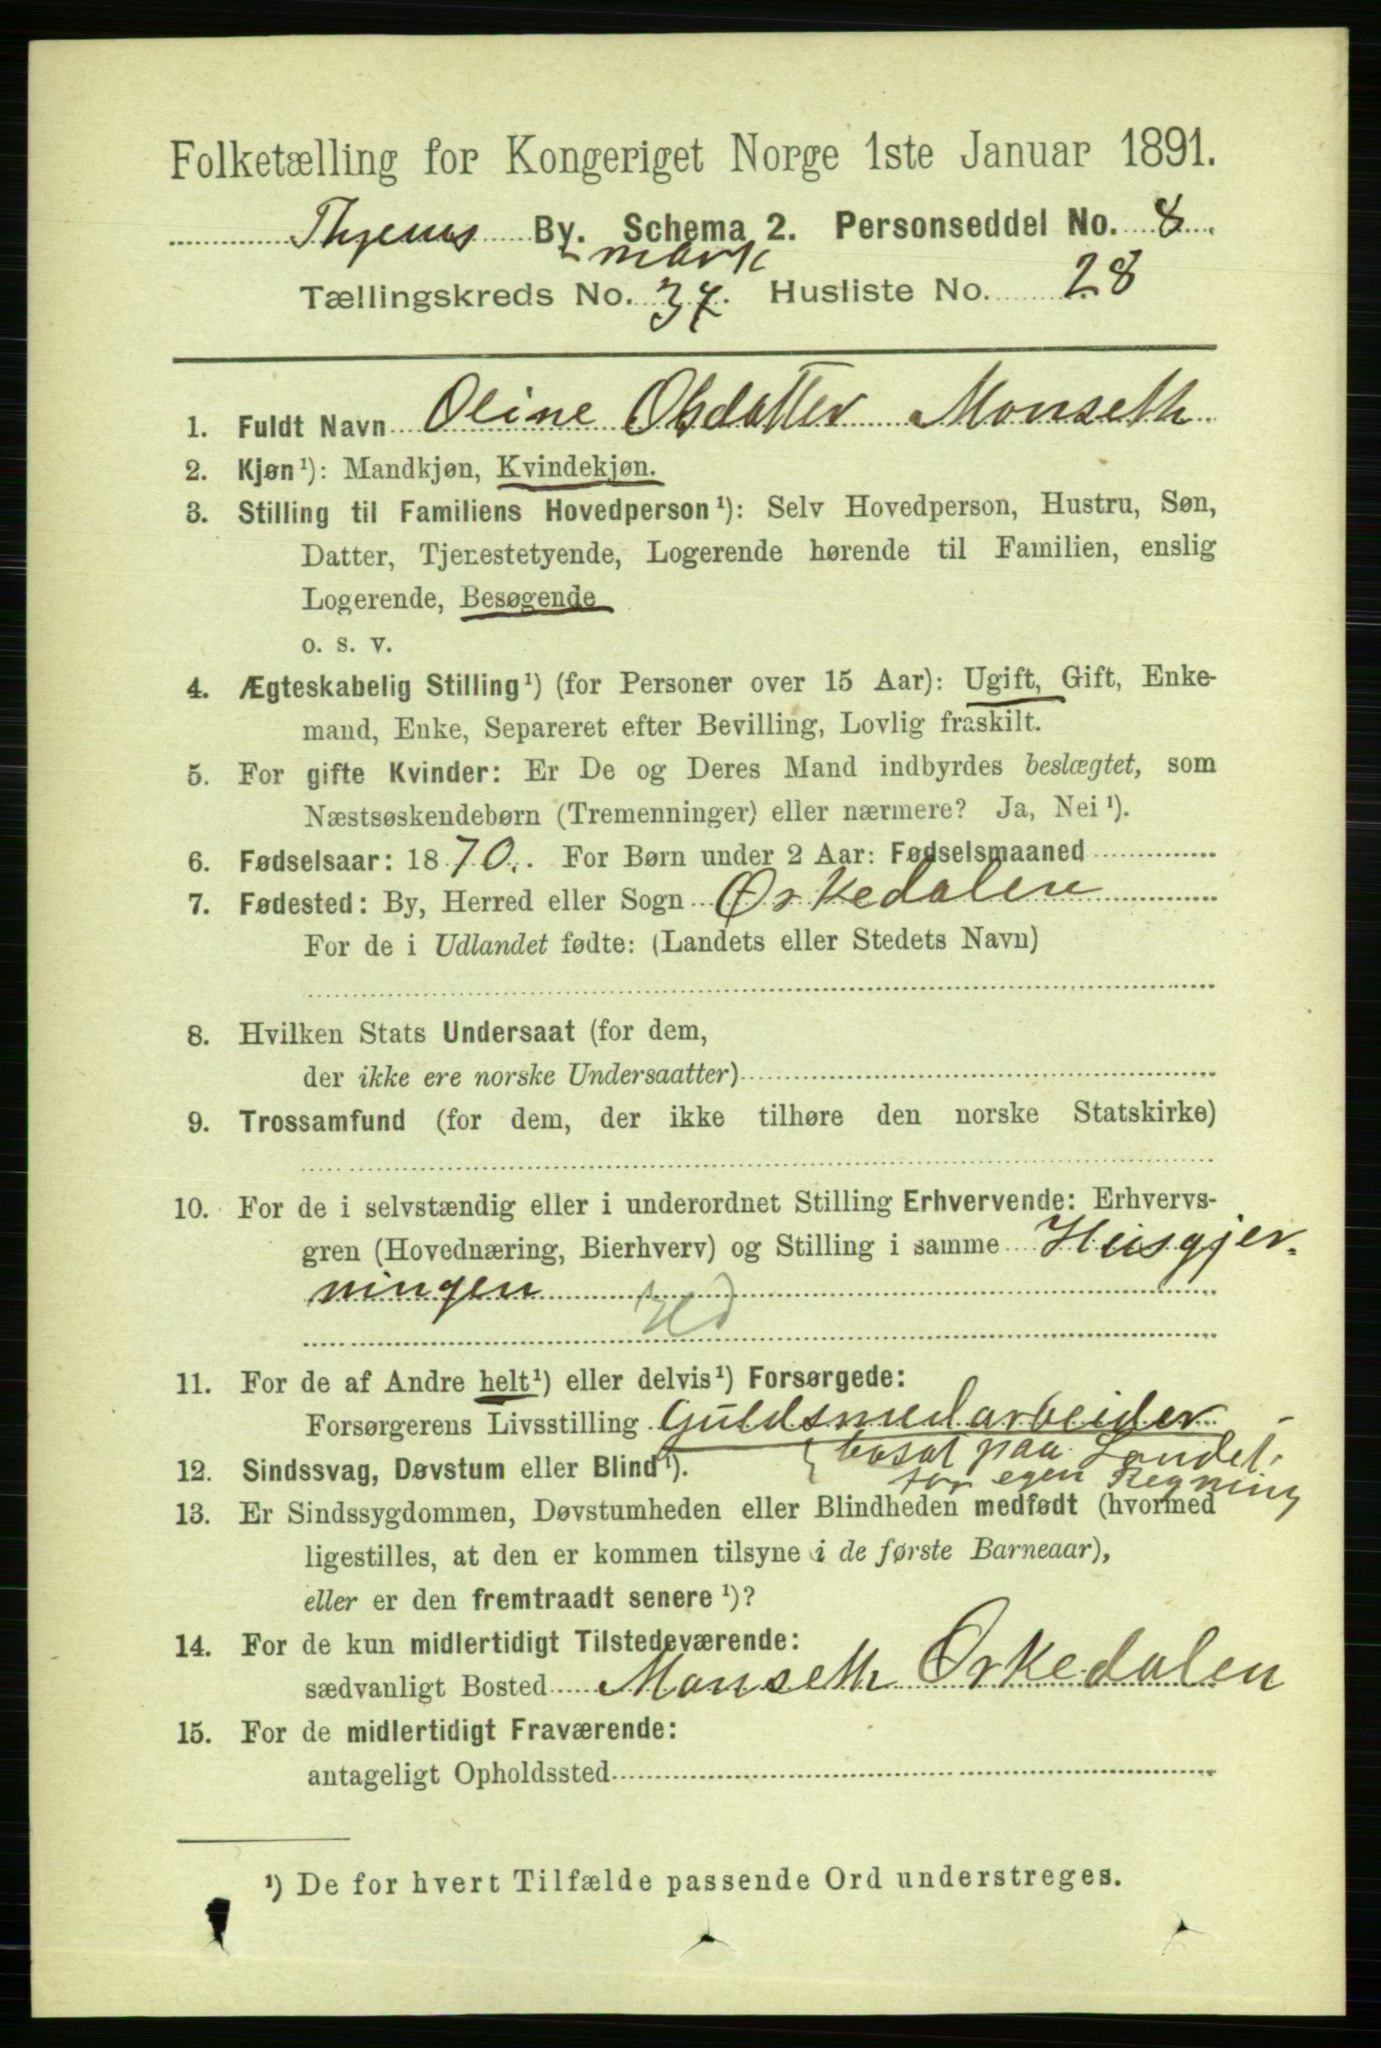 Folketælling for Kongeriget Norge 1ste Januar 1891.
Thjems By. Schema 2. Personseddel No. 8.
mark
Tællingskreds No. 37. Husliste No. 28
1. Fuldt Navn Oline Olsdatter Monseth
2. Kjøn¹): Mandkjøn, Kvindekjøn.
3. Stilling til Familiens Hovedperson¹): Selv Hovedperson, Hustru, Søn,
Datter, Tjenestetyende, Logerende hørende til Familien, enslig
Logerende, Besøgende
o. s. v.
4. Ægteskabelig Stilling¹) (for Personer over 15 Aar): Ugift, Gift, Enke-
mand, Enke, Separeret efter Bevilling, Lovlig fraskilt.
5. For gifte Kvinder: Er De og Deres Mand indbyrdes beslægtet, som
Næstsøskendebørn (Tremenninger) eller nærmere? Ja, Nei ¹).
6. Fødselsaar: 1870. For Børn under 2 Aar: Fødselsmaaned
7. Fødested: By, Herred eller Sogn Orkedalen
For de i Udlandet fødte: (Landets eller Stedets Navn)
8. Hvilken Stats Undersaat (for dem,
der ikke ere norske Undersaatter)
9. Trossamfund (for dem, der ikke tilhøre den norske Statskirke)
10. For de i selvstændig eller i underordnet Stilling Erhvervende: Erhvervs-
gren (Hovednæring, Bierhverv) og Stilling i samme Husgjer-
ningen
11. For de af Andre helt¹) eller delvis¹) Forsørgede:
Forsørgerens Livsstilling Guldsmedarbeider
bosat paa Landet
12. Sindssvag, Døvstum eller Blind¹).
for egen Regning
13. Er Sindssygdommen, Døvstumheden eller Blindheden medfødt (hvormed
ligestilles, at den er kommen tilsyne i de første Barneaar),
eller er den fremtraadt senere ¹)?
14. For de kun midlertidigt Tilstedeværende:
sædvanligt Bosted Monseth Orkedalen
15. For de midlertidigt Fraværende:
antageligt Opholdssted
¹) De for hvert Tilfælde passende Ord understreges.